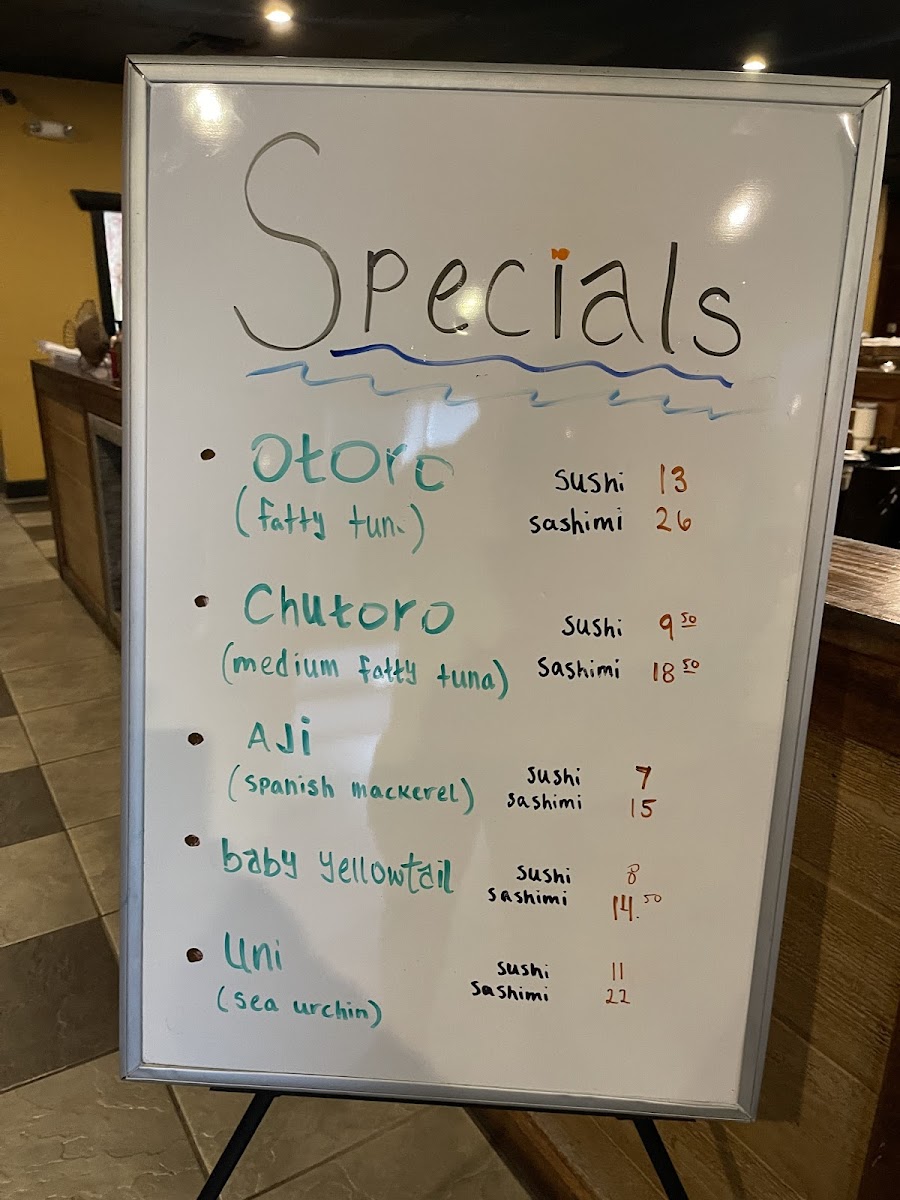 Specials
Otoro sushi 13
(fatty tuna) sashimi 26
Chutoro sushi 9 50
(medium fatty tuna) sashimi 18 50
AJi
(spanish mackerel) sushi 7
sashimi 15
baby yellowtail sushi 8
sashimi 14.50
Uni sushi 11
(sea urchin) sashimi 22